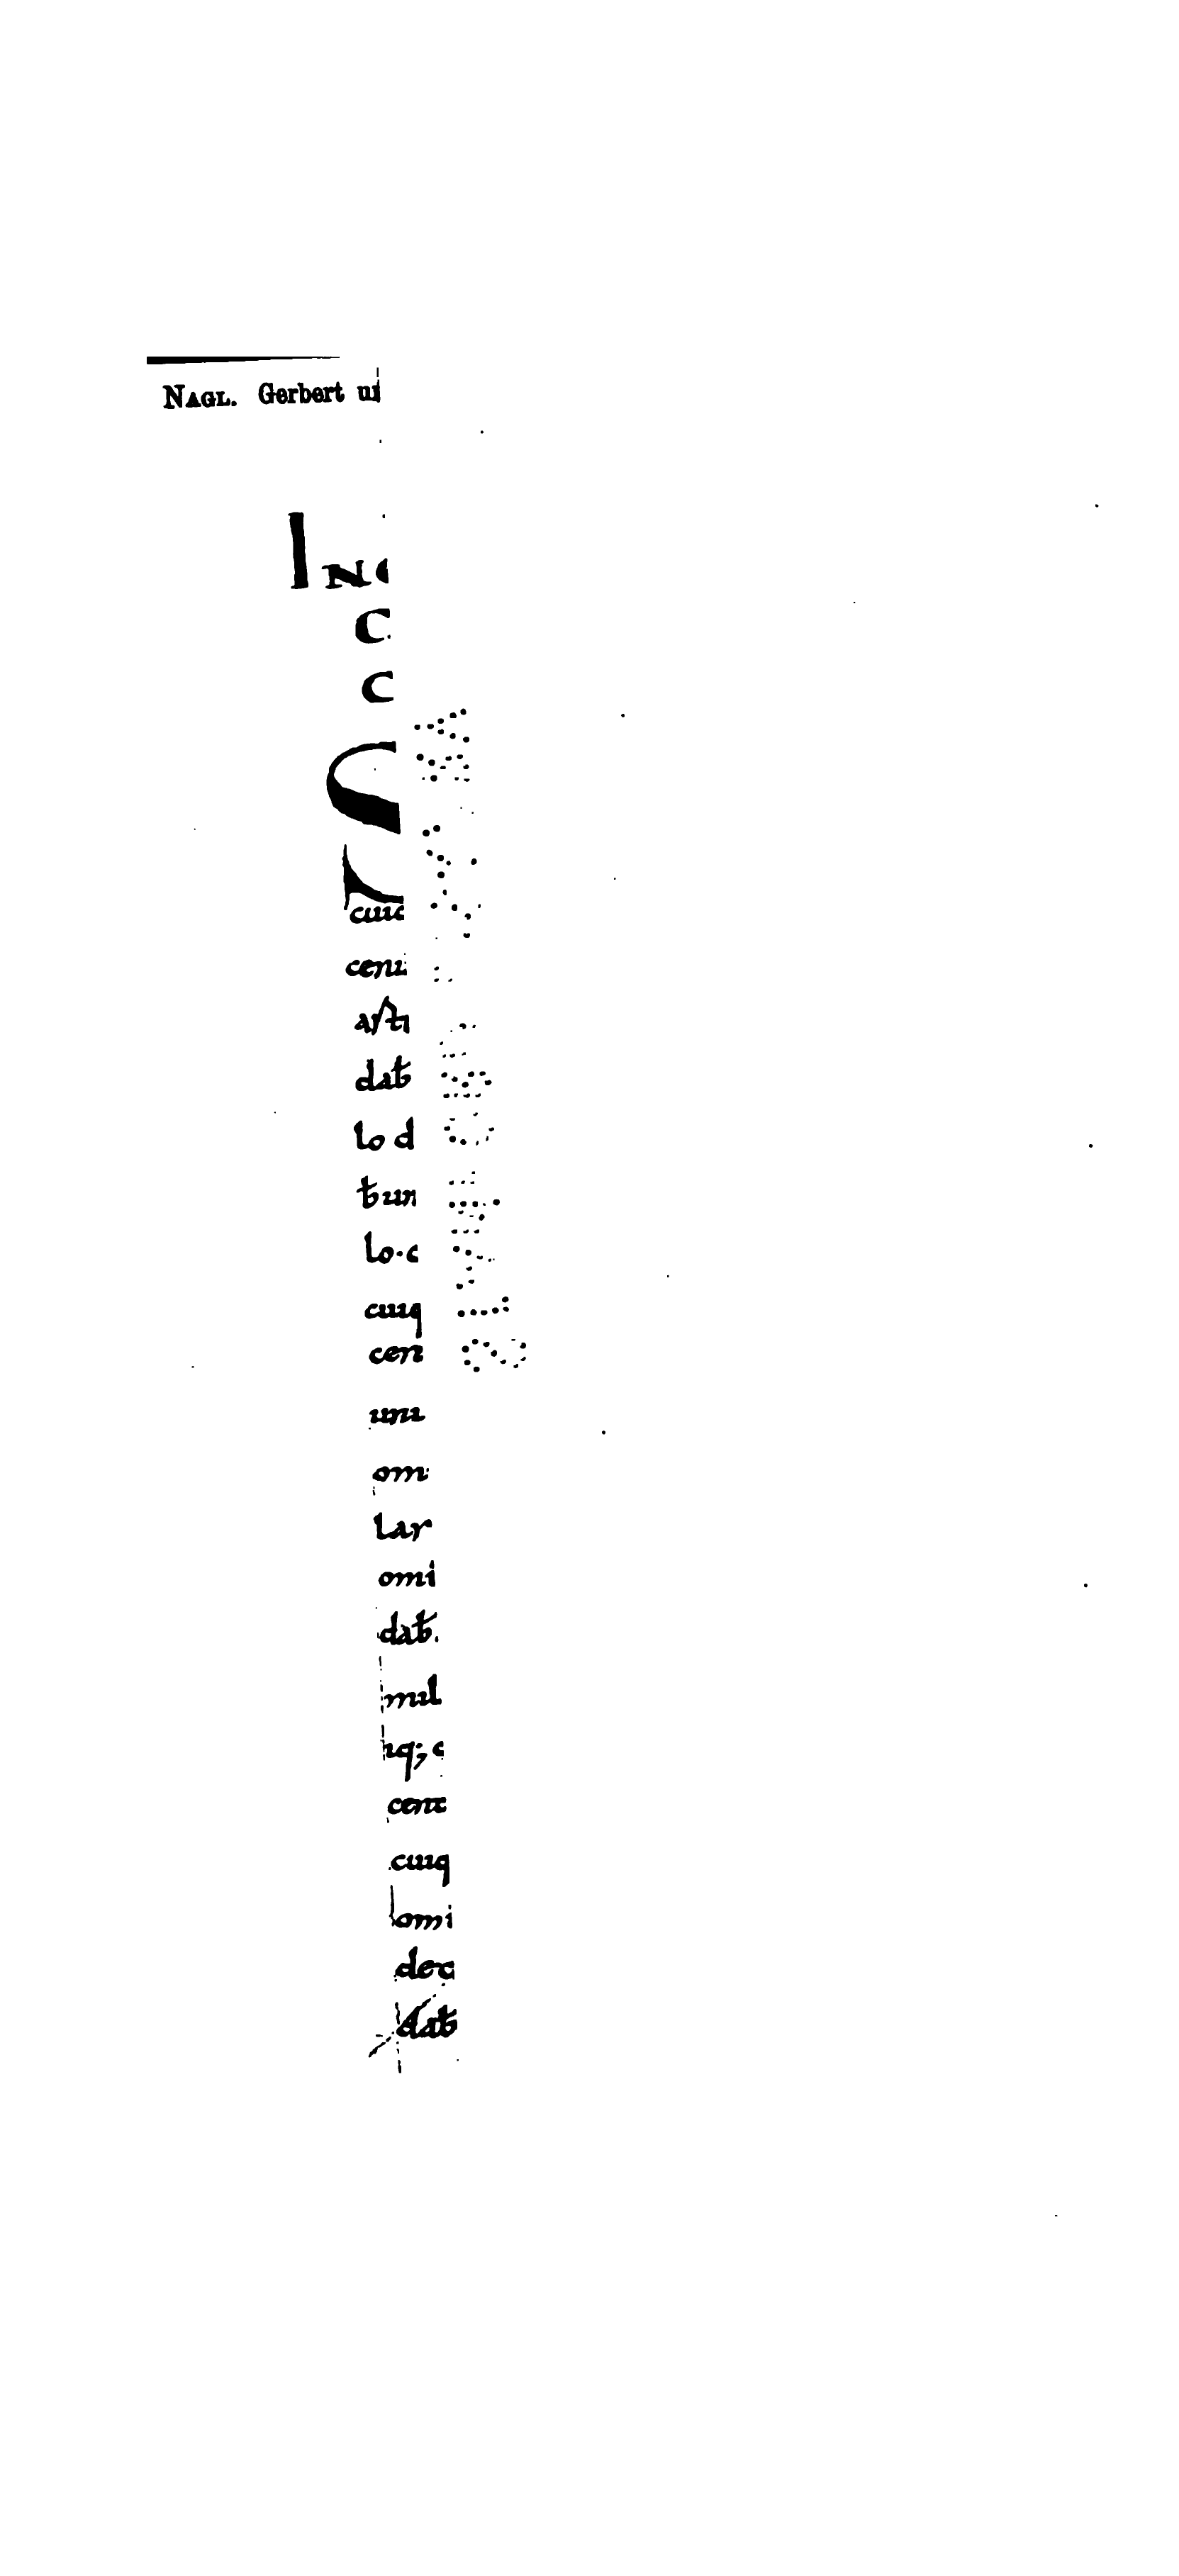 NAGL. Gerbert u
INC
C
C
S
cuic
cenu
asti
dat
lo d
tun
lo·c
cuiq
cen
unu
om
lar
omi
dat.
mil
iq; c
cent
cuiq
omi
dec
dat